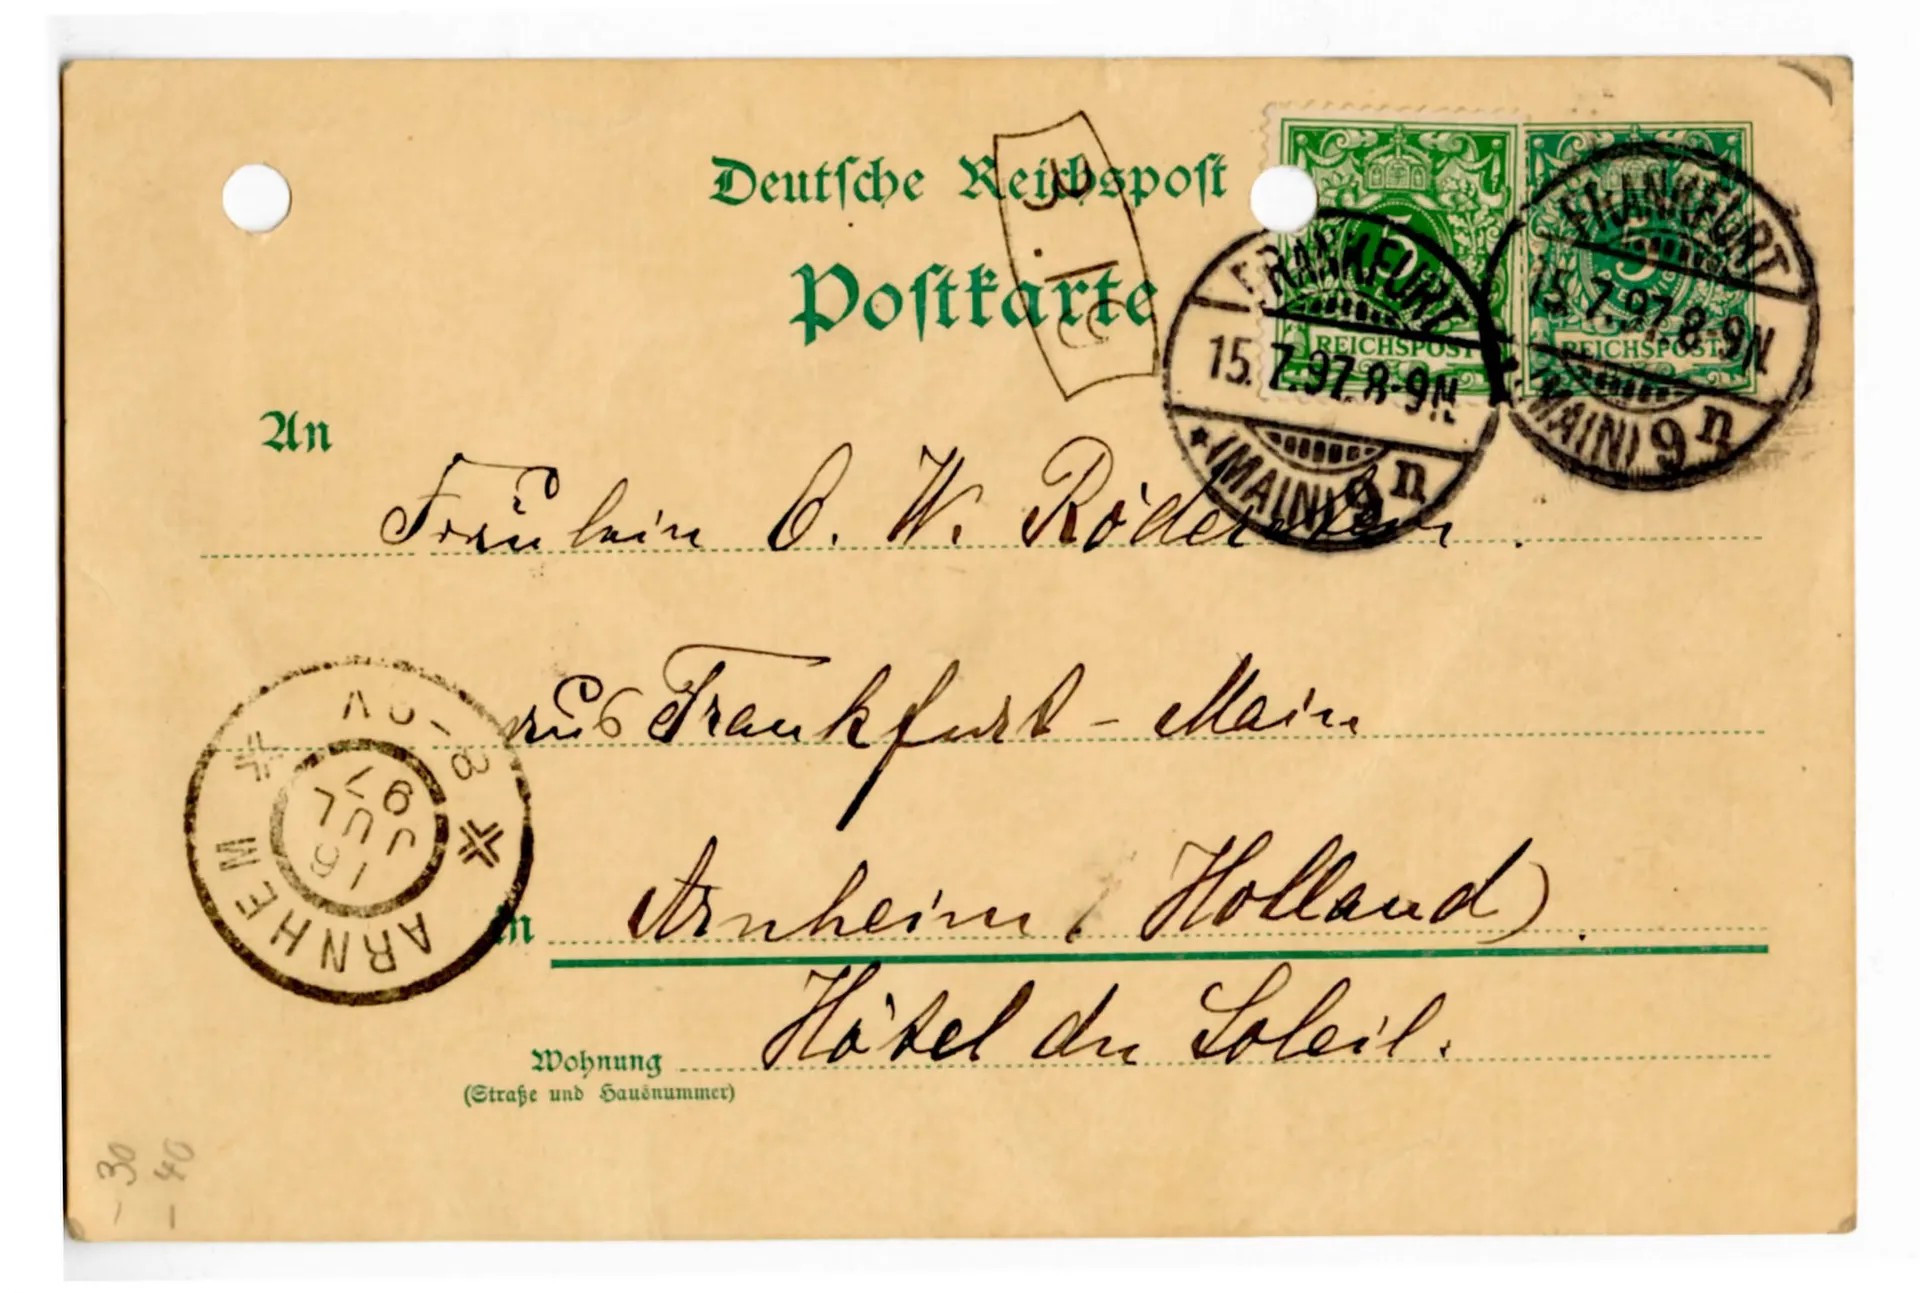 Deutsche Reichspost
Postkarte
5
REICHSPOST
5
REICHSPOST
FRANKFURT
15.7.97. 8-9N
* (MAIN) 9 n
FRANKFURT
15.7.97. 8-9N
(MAIN) 9 n
An
Fräulein O. W. Röderstein.
aus Frankfurt-Main
in Arnheim (Holland).
Wohnung Hôtel du Soleil.
(Straße und Hausnummer)
ARNHEM
16
JUL
97
- 30
- 40